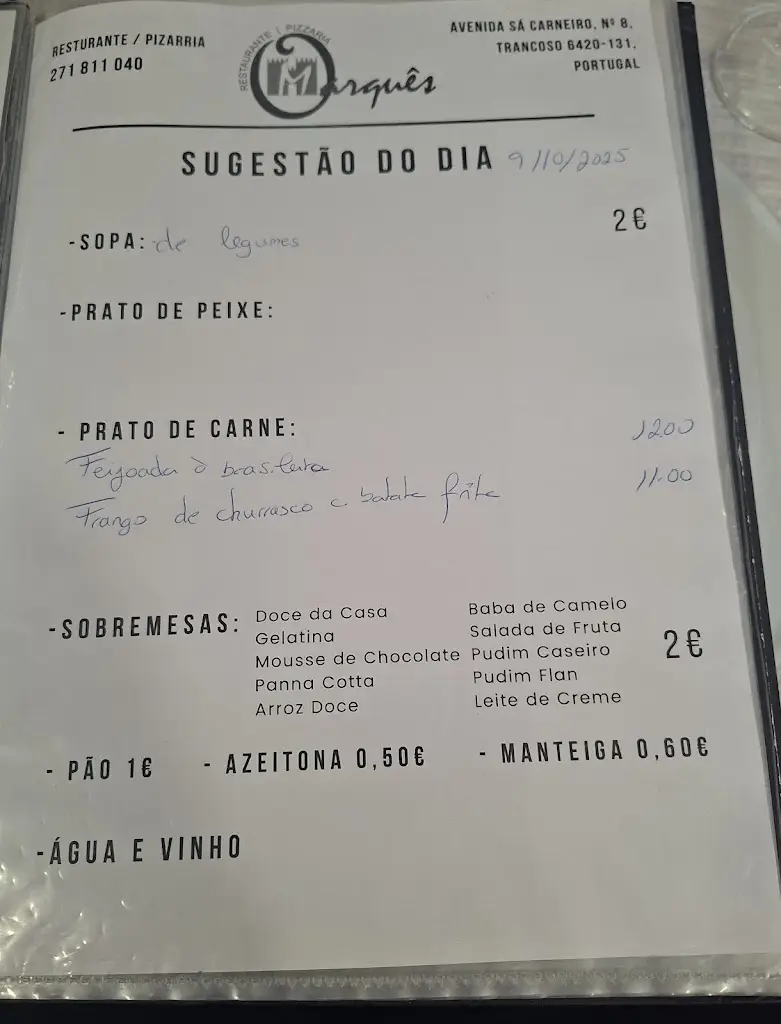 RESTURANTE / PIZARRIA
271 811 040
RESTAURANTE | PIZZARIA
O Marquês
AVENIDA SÁ CARNEIRO, Nº 8,
TRANCOSO 6420-131,
PORTUGAL
SUGESTÃO DO DIA 9/10/2025
-SOPA: de legumes 2€
-PRATO DE PEIXE:
- PRATO DE CARNE:
Feijoada à brasileira 12.00
Frango de churrasco c. batata frita 11.00
-SOBREMESAS: 2€
Doce da Casa
Gelatina
Mousse de Chocolate
Panna Cotta
Arroz Doce
Baba de Camelo
Salada de Fruta
Pudim Caseiro
Pudim Flan
Leite de Creme
- PÃO 1€ - AZEITONA 0,50€ - MANTEIGA 0,60€
-ÁGUA E VINHO